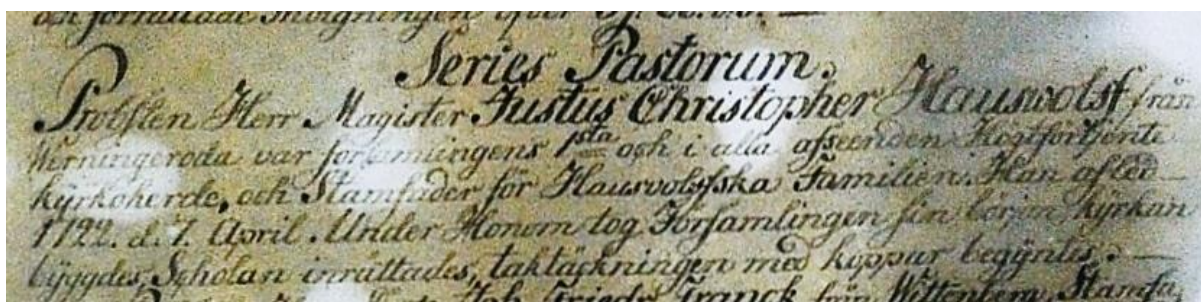 förrättade Invigningen efter
Series Pastorum.
Probsten Herr Magister Justus Christopher Hauswolff från
Werningeroda var församlingens 1sta och i alla afseenden Högtförtjente
kyrkoherde, och Stamfader för Hauswolffska Familien. Han afled
1722. d. 7. April. Under Honom tog Församlingen sin början, kyrkan
byggdes, Scholan inrättades, taktäckningen med koppar begyntes. —
Joh. Friedr. Franck från Wittenberg, Stamfa,